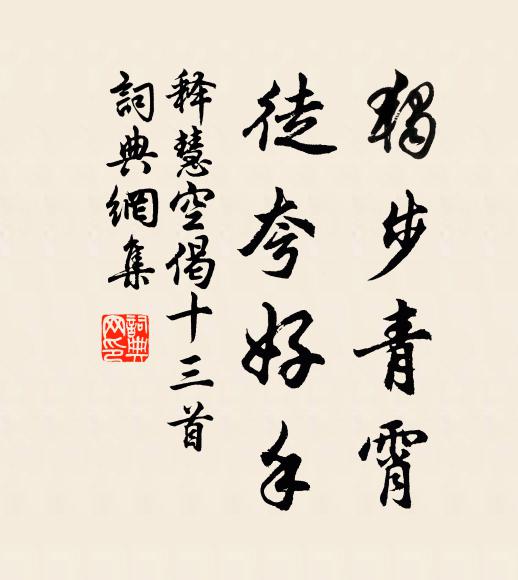 獨步青霄
徒夸好手
释慧空偈十三首
詞典網集
詞典网印